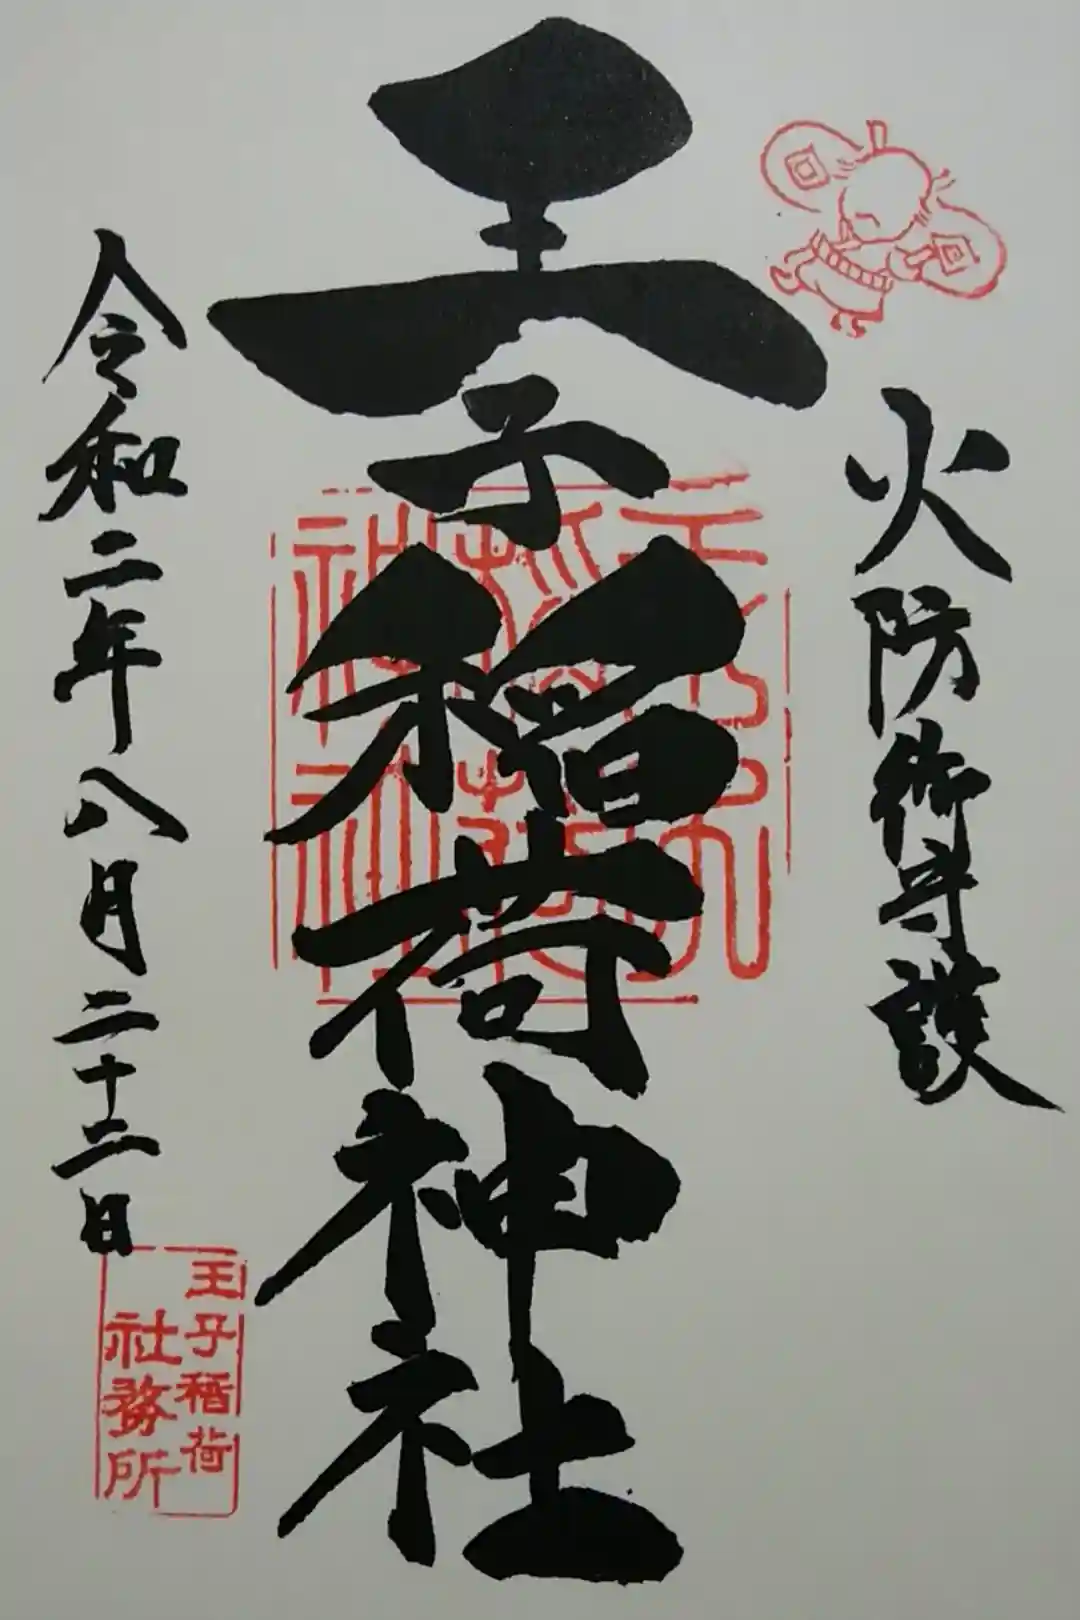 火防御守護
王子稲荷神社
王子稲荷神社
令和二年八月二十二日
王子稲荷
社務所